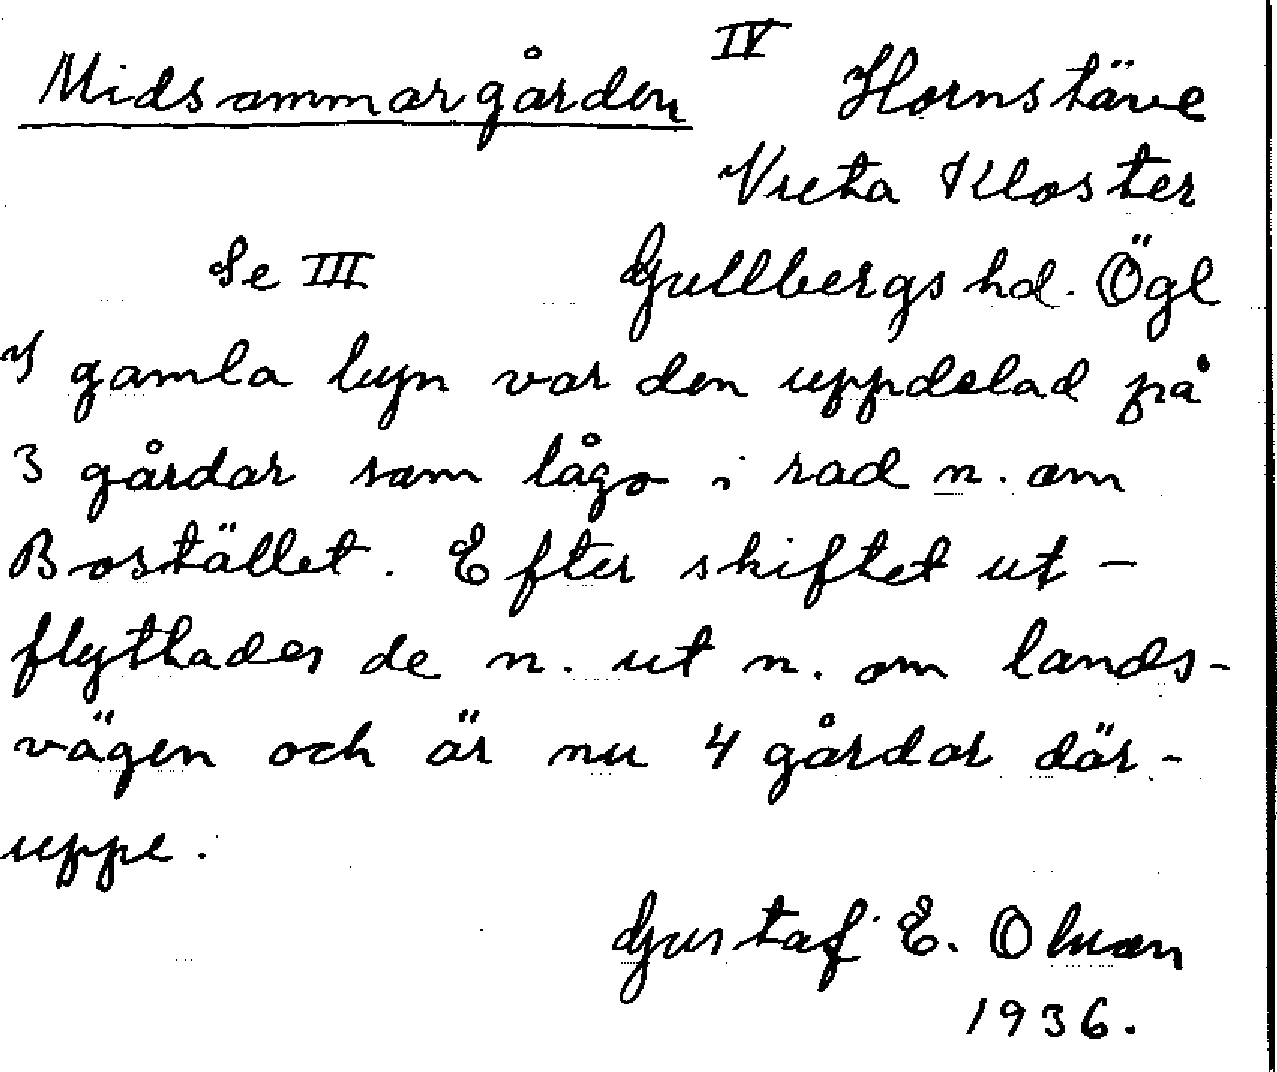 Midsommargården IV Hornstäve
Vreta Kloster
Se III Gullbergs hd. Ögl
I gamla byn var den uppdelad på
3 gårdar som lågo i rad n. om
Bostället. Efter skiftet ut-
flyttades de n. ut n. om lands-
vägen och är nu 4 gårdar där-
uppe.
Gustaf E.
1936.